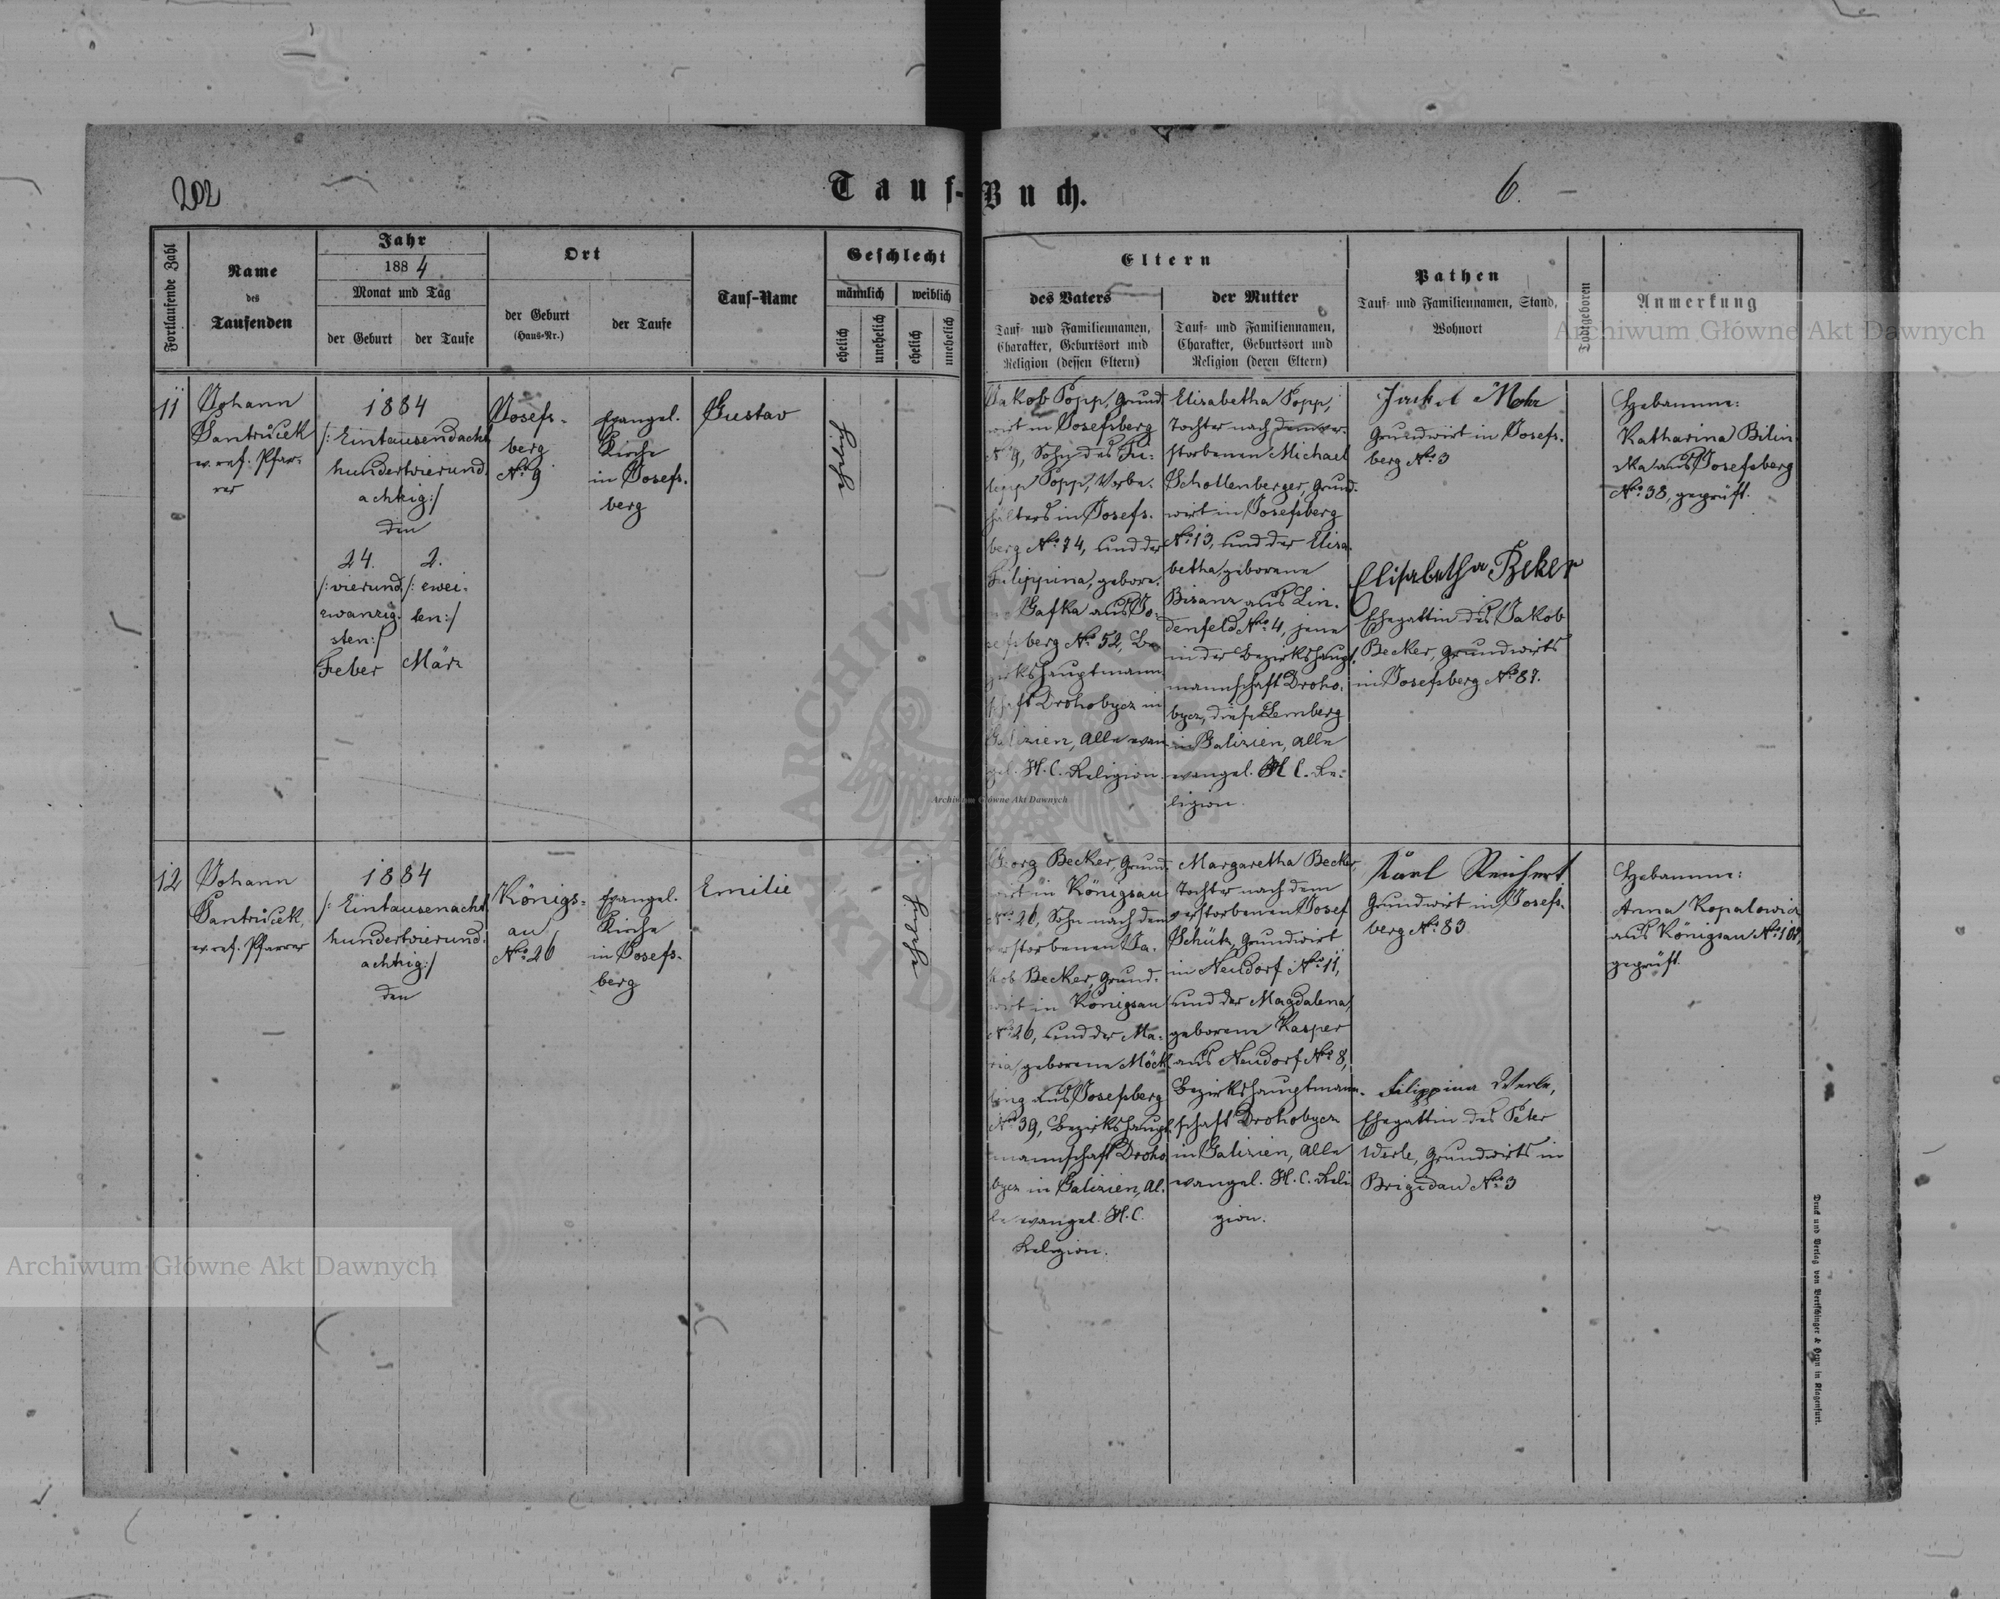 202
Tauf-Buch.
6.
Fortlaufende Zahl
Name
des
Taufenden
Jahr
1884
Monat und Tag
der Geburt
der Taufe
Ort
der Geburt
(Haus-Nr.)
der Taufe
Tauf-Name
Geschlecht
männlich
weiblich
ehelich
unehelich
ehelich
unehelich
Eltern
des Vaters
Tauf- und Familiennamen,
Charakter, Geburtsort und
Religion (dessen Eltern)
der Mutter
Tauf- und Familiennamen,
Charakter, Geburtsort und
Religion (deren Eltern)
Pathen
Tauf- und Familiennamen, Stand,
Wohnort
Todtgeboren
Anmerkung
11
Johann
Jantrůček
ev. ref. Pfar-
rer
1884
/: Eintausendacht
hundertvierund-
achtzig :/
den
24.
/: vierund
zwanzig-
sten :/
Feber
2.
/: zwei-
ten :/
März
Josefs-
berg
No 9
Evangel.
Kirche
in Josefs-
berg
Gustav
ehelich
Jakob Popp, Grund
wirt in Josefsberg
No 9, Sohn des Fi-
lipp Popp, Vorbe-
hälters in Josefs-
berg No 74, und der
Filippina, gebore-
Gafka aus Jo-
sefsberg No 52, Be-
zirkshauptmann
schaft Drohobycz in
Galizien, Alle evan
gel. H. C. Religion.
Elisabetha Popp,
Tochter nach dem ver-
storbenen Michael
Schollenberger, Grund-
wirt in Josefsberg
No 13, und der Elisa-
betha, geborene
Bisanz aus Lin-
denfeld No 4, jene
in der Bezirkshaupt-
mannschaft Droho-
bycz, diese Lemberg
in Galizien, Alle
evangel. H. C. Re-
ligion.
Jakob Mohr
Grundwirt in Josefs-
berg No 3
Elisabetha Beker
Ehegattin des Jakob
Becker, Grundwirts
in Josefsberg No 87.
Hebamme:
Katharina Bilin
ska aus Josefsberg
No 38, geprüft.
12
Johann
Jantrůček,
ev. ref. Pfarrer
1884
/: Eintausenacht
hundertvierund-
achtzig :/
den
Königs-
au
No 26
Evangel.
Kirche
in Josefs-
berg
Emilie
ehelich
Georg Becker, Grund-
wirt in Königsau
No 26, Sohn nach dem
verstorbenen Ja-
kob Becker, Grund-
wirt in Königsau
No 26, und der Ma-
ria, geborene Möck
ling aus Josefsberg
No 39, Bezirkshaupt
mannschaft Droho
bycz in Galizien, Al-
le evangel. H. C.
Religion.
Margaretha Becker,
Tochter nach dem
verstorbenen Josef
Schütz, Grundwirt
in Neudorf No 11,
und der Magdalena,
geborene Kasper
aus Neudorf No 8,
Bezirkshauptmann-
schaft Drohobycz
in Galizien, Alle
evangel. H. C. Reli
gion.
Karl Reichert
Grundwirt in Josefs-
berg No 83
Filippina Werle,
Ehegattin des Peter
Werle, Grundwirts in
Brigidau No 3
Hebamme:
Anna Kopalowicz
aus Königsau No 102,
geprüft.
Druck und Verlag von Bertschinger & Heyn in Klagenfurt.
Archiwum Główne Akt Dawnych
Archiwum Główne Akt Dawnych
Archiwum Główne Akt Dawnych